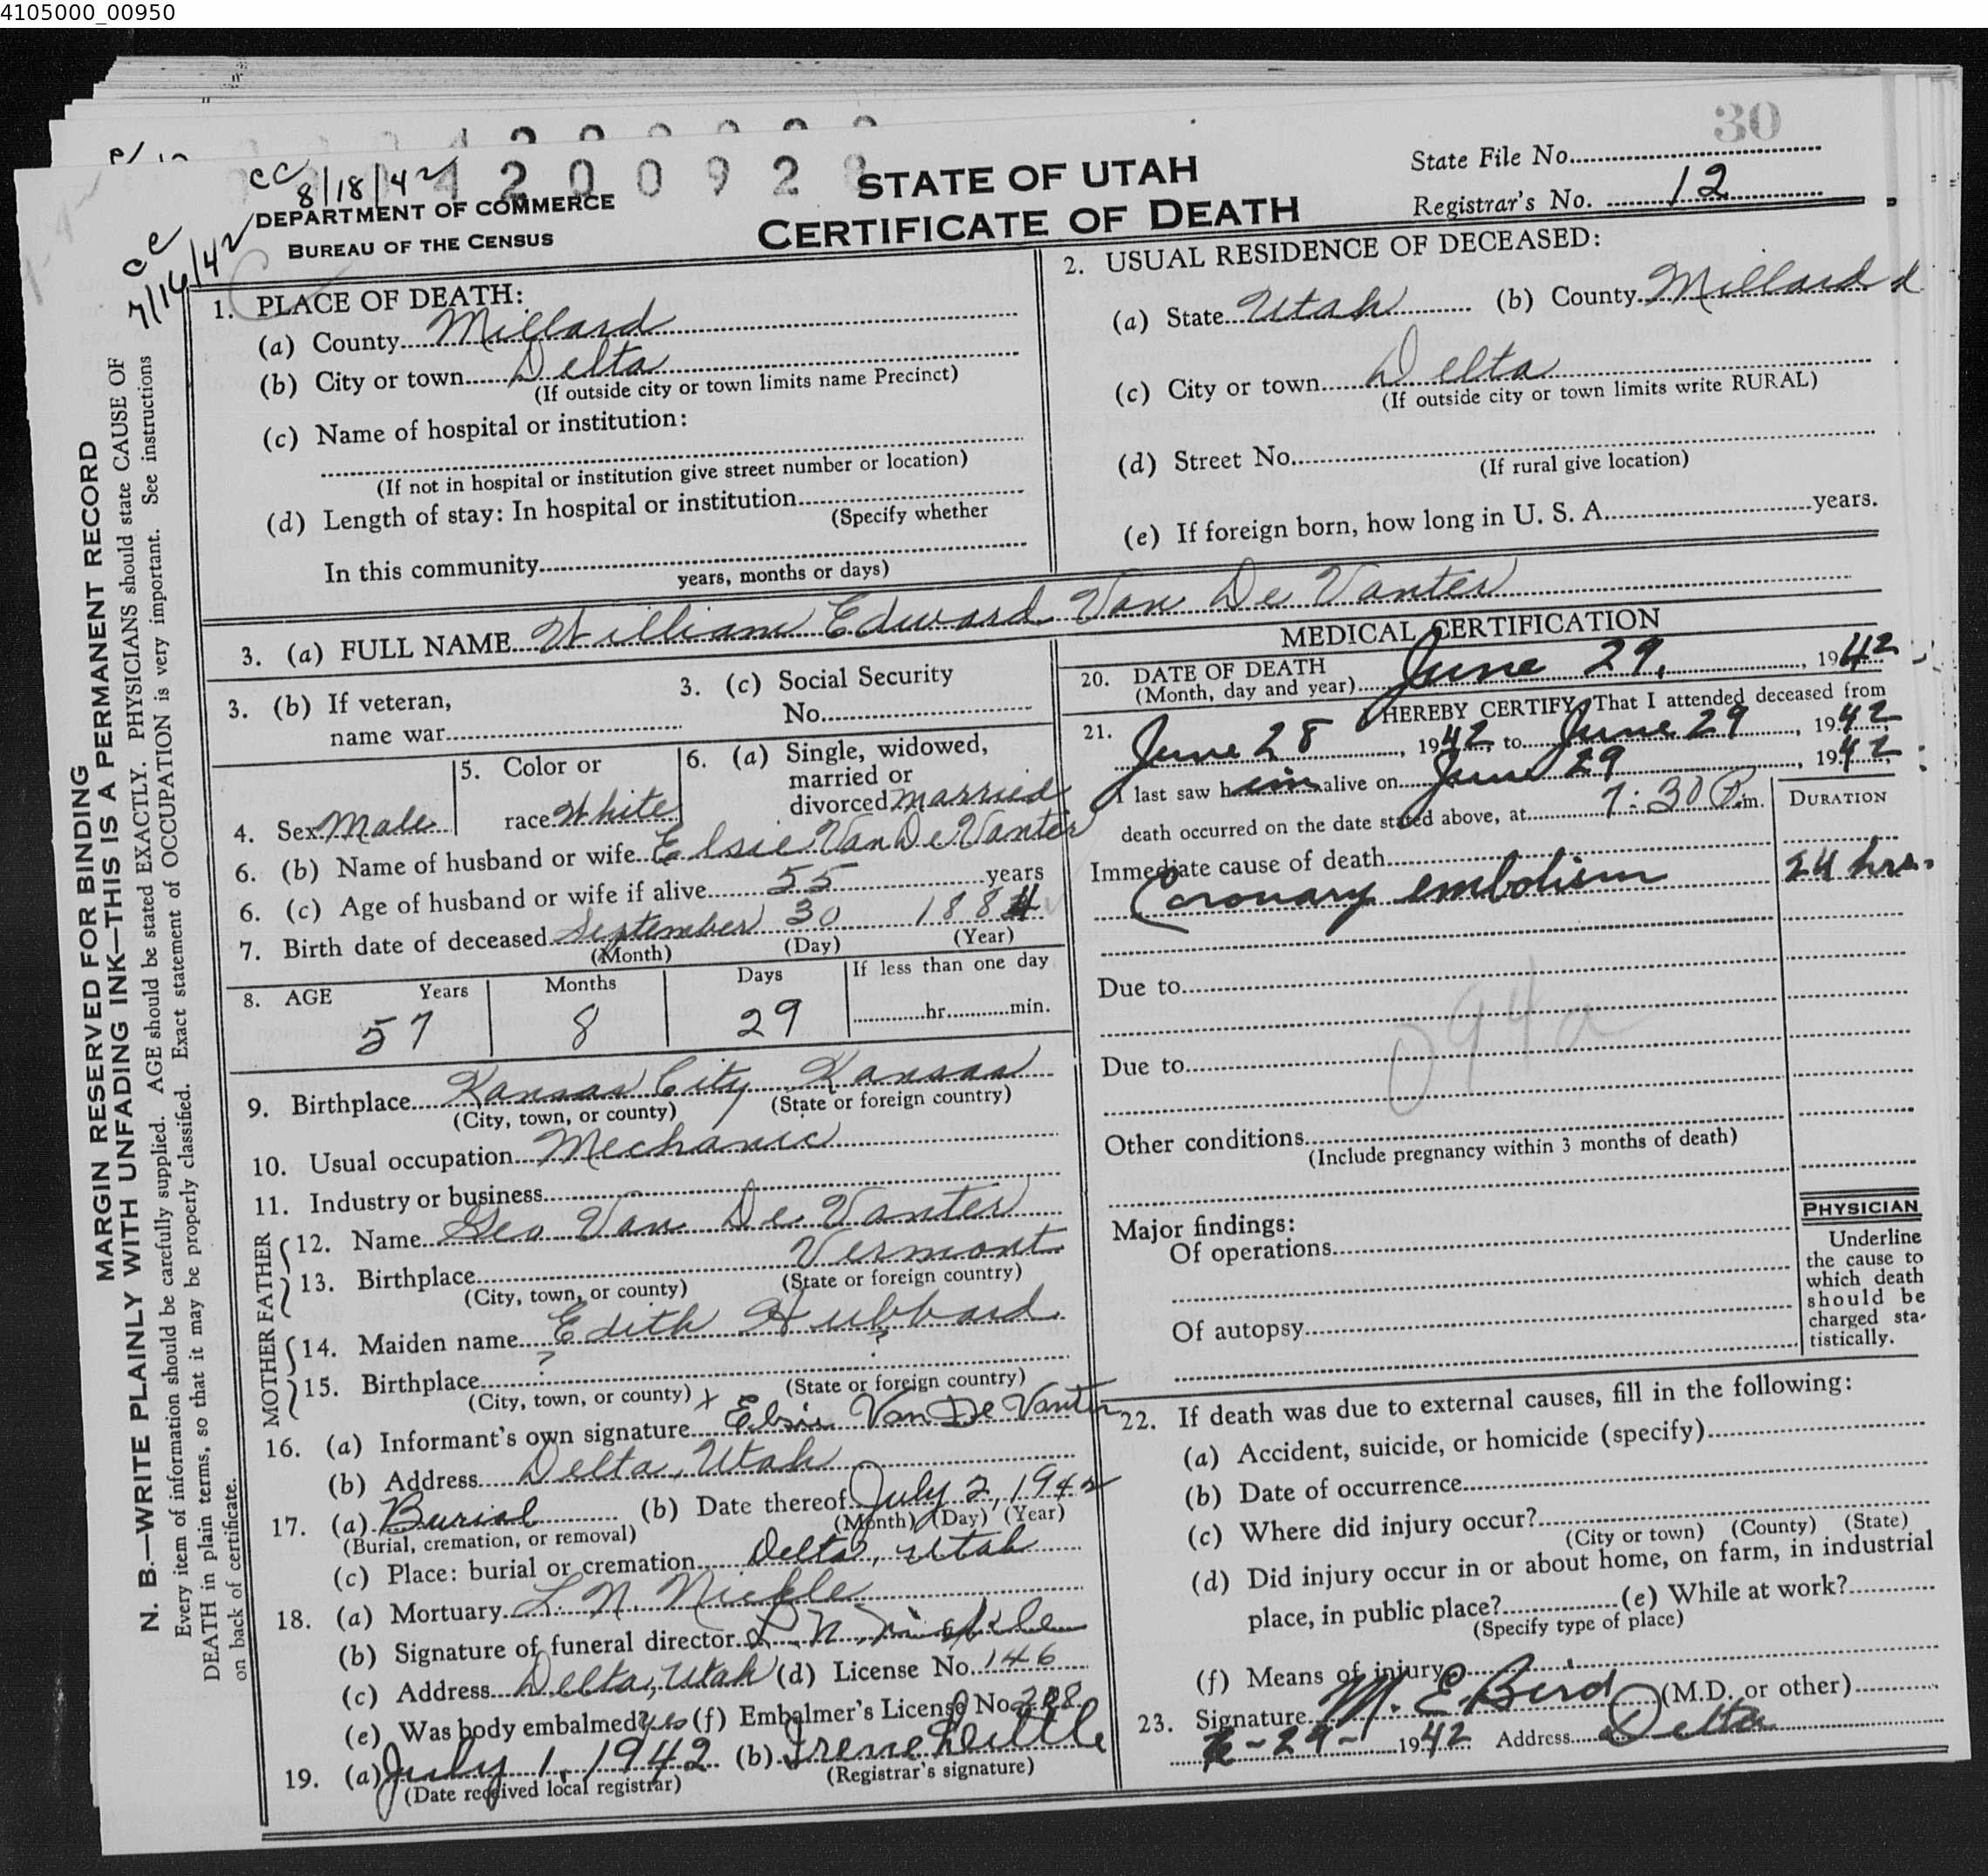 4105000_00950
30
cc 8/18/42
4200928
cc 7/16/42
DEPARTMENT OF COMMERCE
BUREAU OF THE CENSUS
STATE OF UTAH
CERTIFICATE OF DEATH
State File No.
Registrar's No. 12
MARGIN RESERVED FOR BINDING
N. B.—WRITE PLAINLY WITH UNFADING INK—THIS IS A PERMANENT RECORD
Every item of information should be carefully supplied. AGE should be stated EXACTLY. PHYSICIANS should state CAUSE OF
DEATH in plain terms, so that it may be properly classified. Exact statement of OCCUPATION is very important. See instructions
on back of certificate.
1. PLACE OF DEATH:
(a) County Millard
(b) City or town Delta
(If outside city or town limits name Precinct)
(c) Name of hospital or institution:
(If not in hospital or institution give street number or location)
(d) Length of stay: In hospital or institution
(Specify whether
In this community
years, months or days)
2. USUAL RESIDENCE OF DECEASED:
(a) State Utah (b) County Millard
(c) City or town Delta
(If outside city or town limits write RURAL)
(d) Street No.
(If rural give location)
(e) If foreign born, how long in U. S. A. years.
3. (a) FULL NAME William Edward Van De Vanter
3. (b) If veteran,
name war
3. (c) Social Security
No.
4. Sex Male
5. Color or
race White
6. (a) Single, widowed,
married or
divorced married
6. (b) Name of husband or wife Elsie Van De Vanter
6. (c) Age of husband or wife if alive 55 years
7. Birth date of deceased September 30 1884
(Month) (Day) (Year)
8. AGE Years Months Days If less than one day
57 8 29 hr. min.
9. Birthplace Kansas City Kansas
(City, town, or county) (State or foreign country)
10. Usual occupation Mechanic
11. Industry or business
FATHER
12. Name Geo Van De Vanter
13. Birthplace Vermont
(City, town, or county) (State or foreign country)
MOTHER
14. Maiden name Edith Hubbard
15. Birthplace ? ?
(City, town, or county) (State or foreign country)
16. (a) Informant's own signature x Elsie Van De Vanter
(b) Address Delta, Utah
17. (a) Burial (b) Date thereof July 2, 1942
(Burial, cremation, or removal) (Month) (Day) (Year)
(c) Place: burial or cremation Delta, Utah
18. (a) Mortuary L. N. Nickle
(b) Signature of funeral director L. N. Nickle
(c) Address Delta, Utah (d) License No. 146
(e) Was body embalmed? yes (f) Embalmer's License No.
19. (a) July 1, 1942 (b) Irene
(Date received local registrar) (Registrar's signature)
MEDICAL CERTIFICATION
20. DATE OF DEATH
(Month, day and year) June 29, 1942
21. I HEREBY CERTIFY, That I attended deceased from
June 28, 1942, to June 29, 1942
I last saw him alive on June 29, 1942
death occurred on the date stated above, at 7:30 P.m.
DURATION
Immediate cause of death
Coronary embolism 24 hrs.
Due to
094a
Due to
Other conditions
(Include pregnancy within 3 months of death)
Major findings:
Of operations
Of autopsy
PHYSICIAN
Underline
the cause to
which death
should be
charged sta-
tistically.
22. If death was due to external causes, fill in the following:
(a) Accident, suicide, or homicide (specify)
(b) Date of occurrence
(c) Where did injury occur?
(City or town) (County) (State)
(d) Did injury occur in or about home, on farm, in industrial
place, in public place? (e) While at work?
(Specify type of place)
(f) Means of injury
23. Signature M. E. Bird (M.D. or other)
6-29- 1942 Address Delta